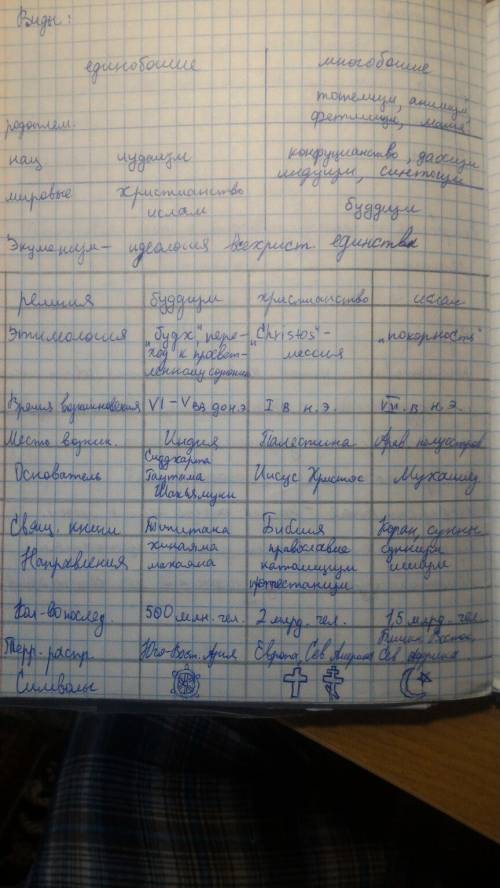 Виды:
единобошие многобошие
тотемизм, анимизм,
родоплем. фетишизм, магия
нац иудаизм конфуцианство, даосизм
индуизм, синтоизм
мировые христианство
ислам буддизм
Экуменизм - идеология всехрист. единства
религия буддизм христианство ислам
Этимология "будх" пере- "Christos" - "покорность"
ход к просвет- мессия
ленному
Время возникновения VI - V вв до н.э I в н.э. VII в н.э.
Место возник. Индия Палестина Арав. полуостров
Основатель Сиддхарта Иисус Христос Мухаммед
Гаутама
Шакьямуни
Свящ. книги Типитака Библия Коран, сунны
Направления хинаяма православие суннизм
махаяма католицизм шиизм
протестанизм
Кол-во послед. 500 млн. чел. 2 млрд. чел. 1,5 млрд. чел.
Терр. распр Юго-Вост. Азия Европа, Сев Америка Ближн. Восток
Сев Африка
Символы